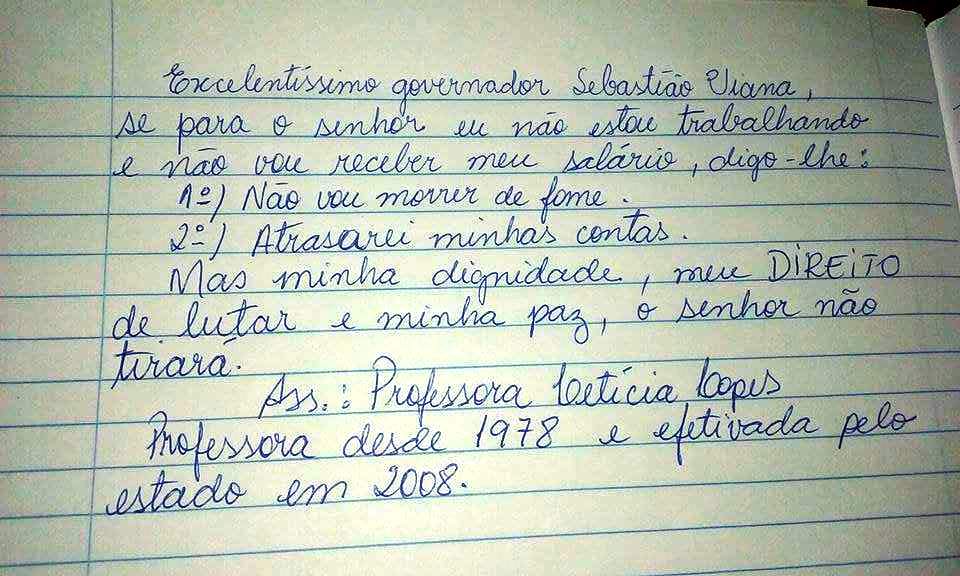 Excelentíssimo governador Sebastião Viana,
se para o senhor eu não estou trabalhando
e não vou receber meu salário, digo-lhe:
1º) Não vou morrer de fome.
2º) Atrasarei minhas contas.
Mas minha dignidade, meu DIREITO
de lutar e minha paz, o senhor não
tirará.
Ass.: Professora Letícia Lopes
Professora desde 1978 e efetivada pelo
estado em 2008.